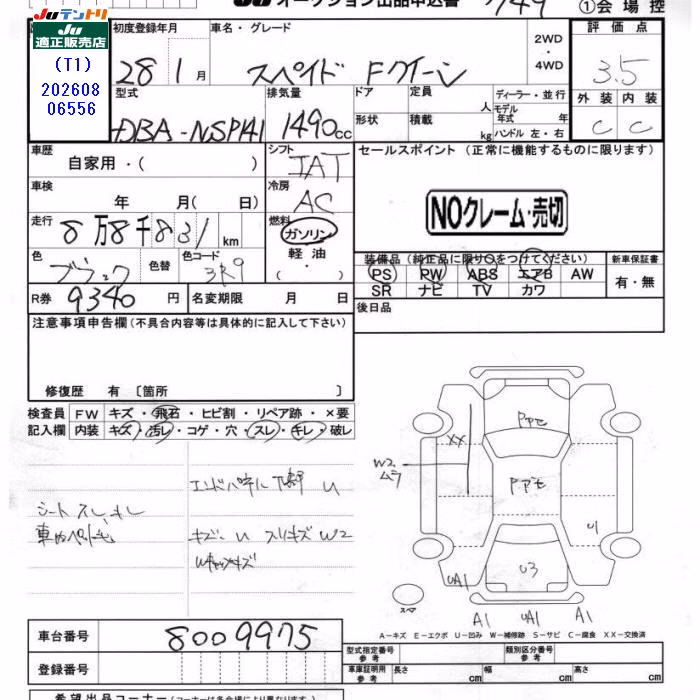 JUテントリ
JU
適正販売店
(T1)
202608
06556
JU オークション出品申込書 749 ①会場控
初度登録年月 車名・グレード 2WD ・ 4WD 評価点
28 1月 スペイド Fクイーン 3.5
型式 排気量 ドア 定員 人 ディーラー・並行 外装 内装
DBA-NSP141 1490cc 形状 積載 kg モデル年式 年式 ハンドル 左・右 C C
車歴 自家用・( ) シフト IAT セールスポイント (正常に機能するものに限ります)
車検 年 月( 日) 冷房 AC NOクレーム・売切
走行 8万8千831km 燃料 ガソリン
軽油
・( )
色 ブラック 色替 色コード 3R9
装備品 (純正品に限り○をつけてください) 新車保証書
PS PW ABS エアB AW 有・無
SR ナビ TV カワ
R券 9340円 名変期限 月 日 後日品
注意事項申告欄(不具合内容等は具体的に記入して下さい)
修復歴 有 〔箇所 〕
検査員 FW キズ・飛石・ヒビ割・リペア跡・×要
記入欄 内装 キズ・汚レ・コゲ・穴・スレ・キレ・破レ
下部 U
シート スレ、キレ
キズ U スリキズ W2
XX
W2
ムラ
U1
UA1
U3
スペア
A1 UA1 A1
A-キズ E-エクボ U-凹み W-補修跡 S-サビ C-腐食 XX-交換済
車台番号 8009975
型式指定番号 参考 類別区分番号 参考
登録番号
車庫証明用 参考 長さ cm 幅 cm 高さ cm
希望出品コーナー